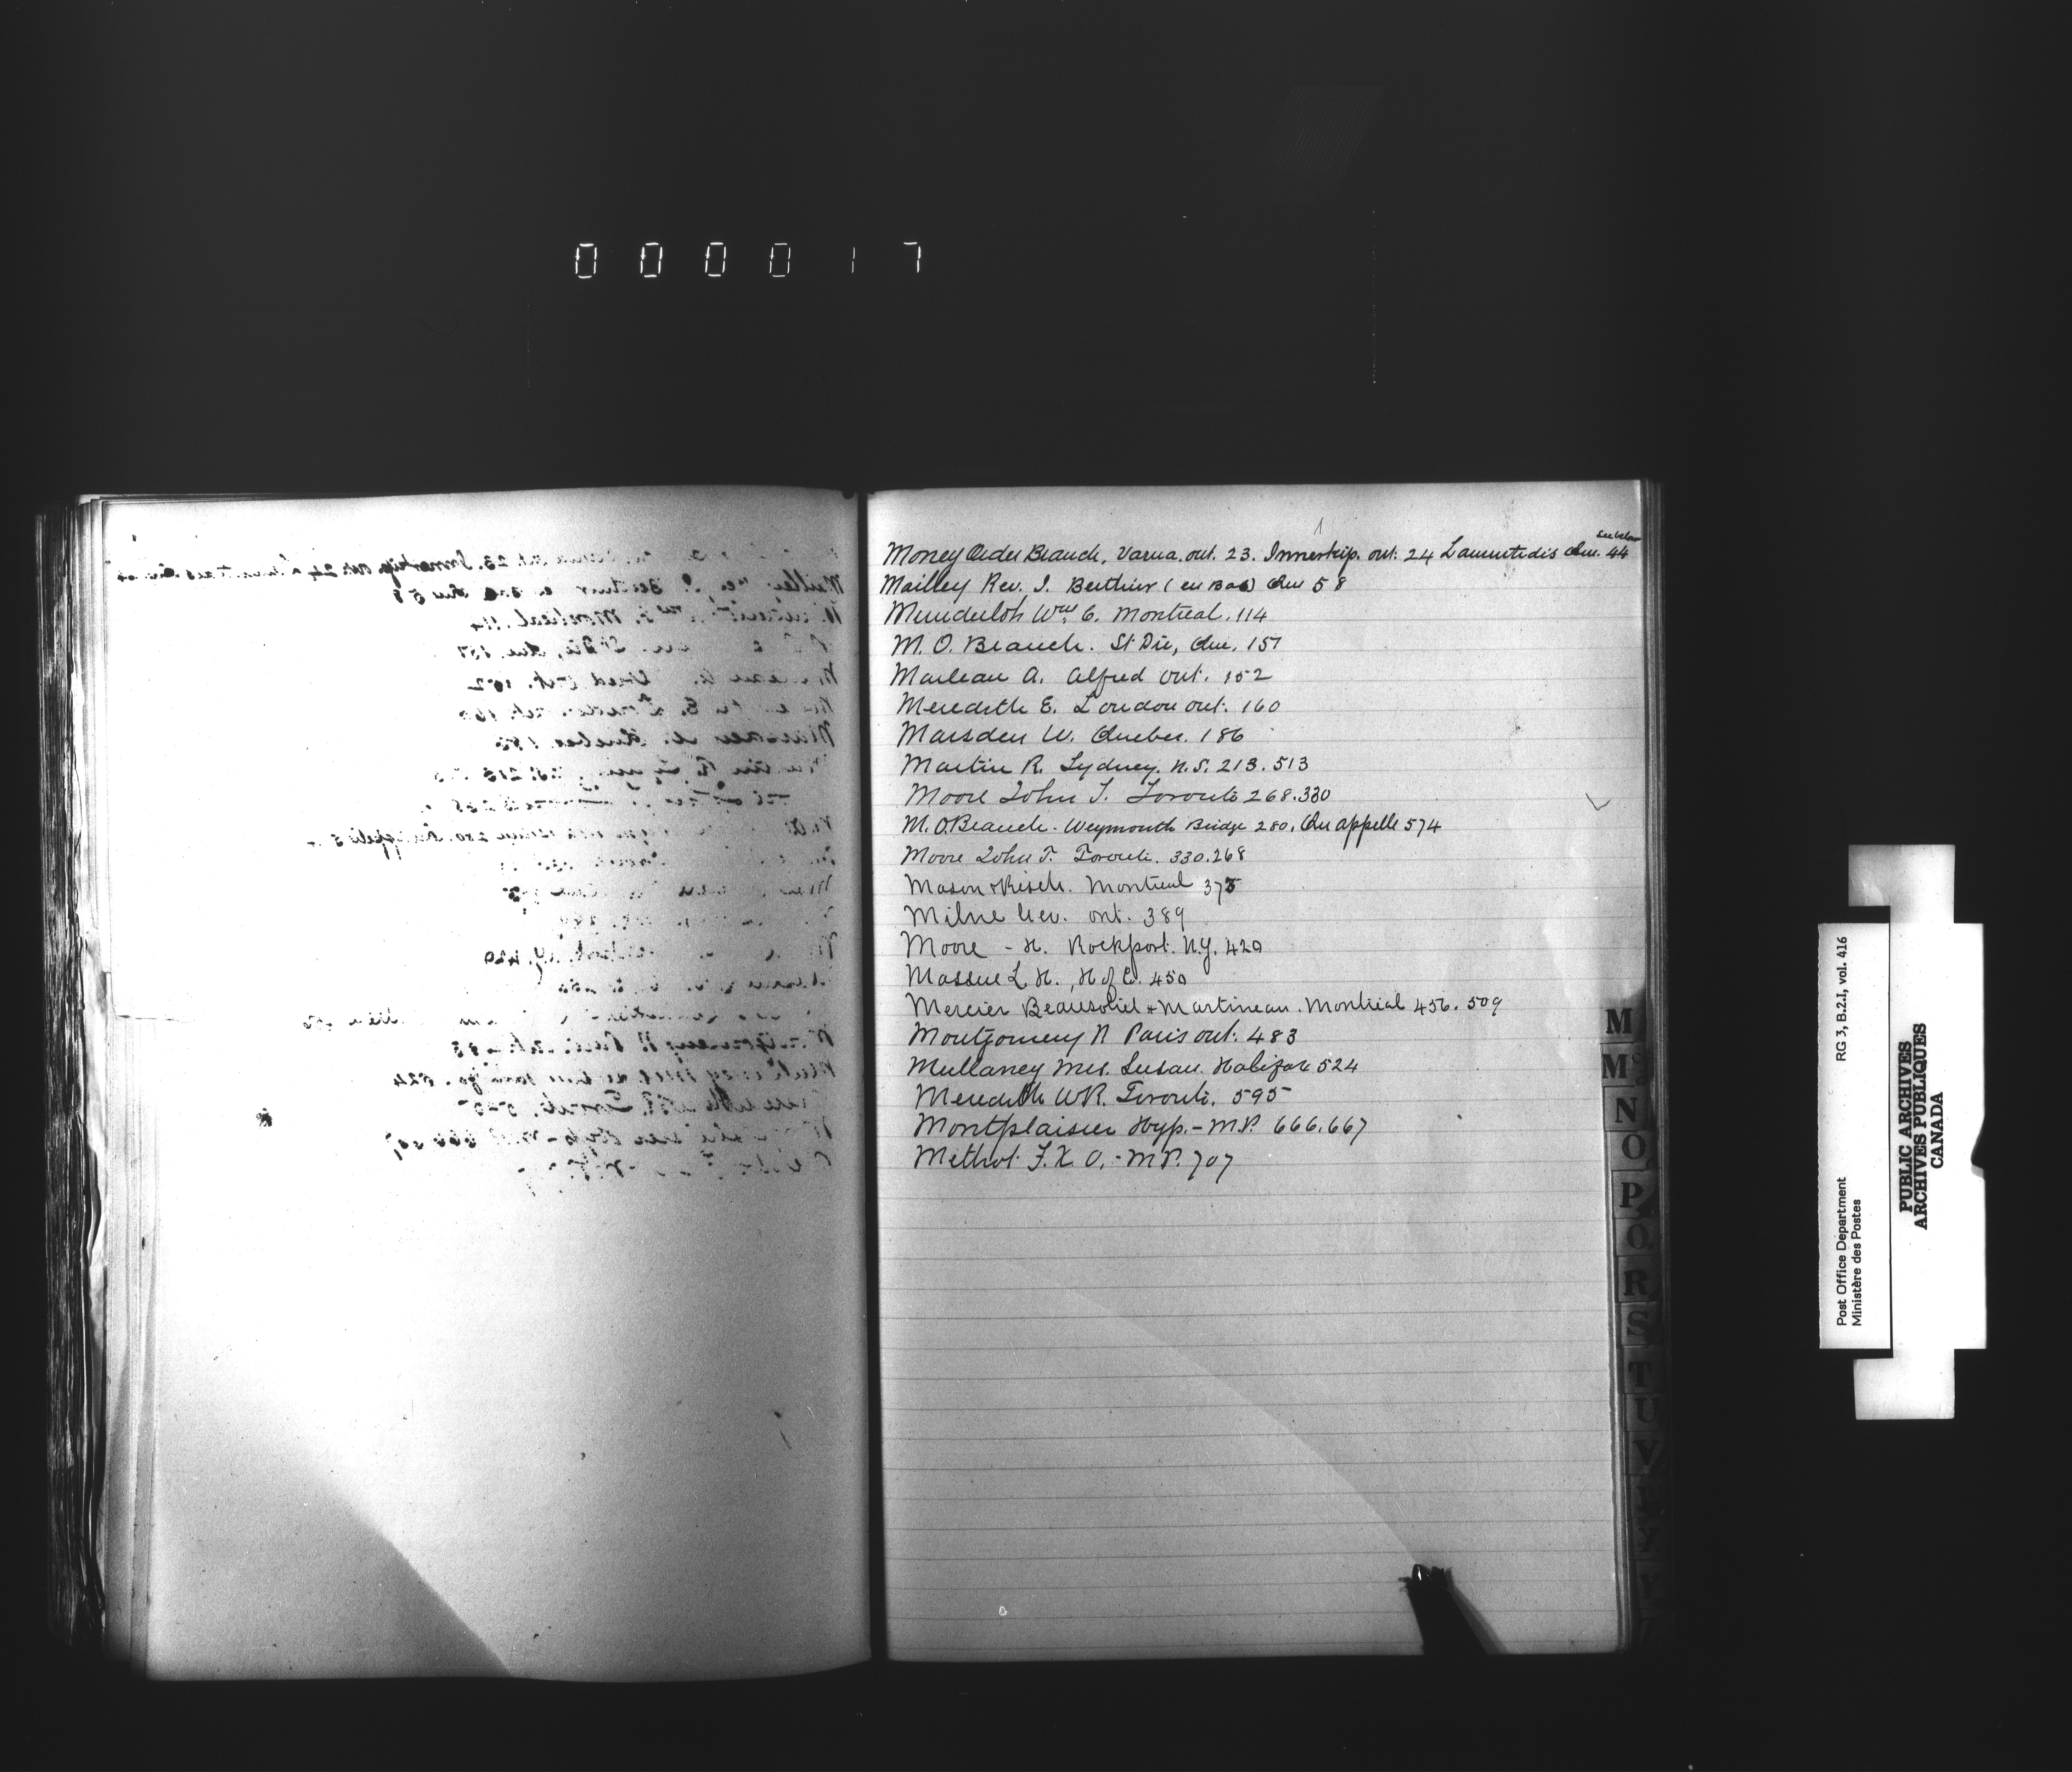 000017
see below
Money Order Branch, Varna. Ont. 23. Innerkip. Ont. 24 Laurentides Que. 44
Mailley Rev. J. Berthier (en Bas) Que 58
Munderloh Wm. C. Montreal. 114
M. O. Branch. St Die, Que. 151
Marleau A. Alfred Ont. 152
Meredith E. London Ont. 160
Marsden W. Quebec. 186
Martin R. Sydney. N.S. 213. 513
Moore John T. Toronto 268. 330
M. O. Branch. Weymouth Bridge 280. Qu'appelle 574
Moore John T. Toronto. 330. 268
Mason & Risch. Montreal 375
Milne Ont. 389
Moore - H. Rockport. N.Y. 420
Massue L. H., H of C. 450
Mercier Beausoliel & Martineau. Montreal 456. 509
Montgomery R Paris Ont. 483
Mullaney Mrs. Susan. Halifax 524
Meredith W R. Toronto. 595
Montplaisir Hyp. - M.P. 666. 667
Methot F. X. O. - M.P. 707
M
Mc
N
O
P
Q
R
S
T
U
V
Post Office Department
Ministère des Postes
RG 3, B.2.I, vol. 416
PUBLIC ARCHIVES
ARCHIVES PUBLIQUES
CANADA